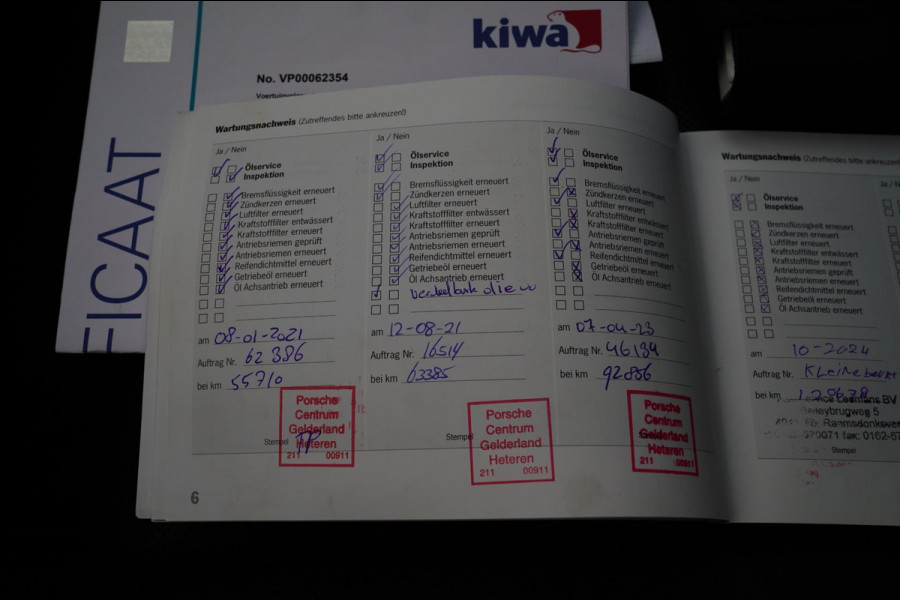 kiwa
No. VP00062354
FICAAT
Wartungsnachweis (Zutreffendes bitte ankreuzen!)
Ja / Nein
Ölservice
Inspektion
Bremsflüssigkeit erneuert
Zündkerzen erneuert
Luftfilter erneuert
Kraftstofffilter entwässert
Kraftstofffilter erneuert
Antriebsriemen geprüft
Antriebsriemen erneuert
Reifendichtmittel erneuert
Getriebeöl erneuert
Öl Achsantrieb erneuert
am 08-01-2021
Auftrag Nr. 62386
bei km 55710
Stempel
Porsche
Centrum
Gelderland
Heteren
211 00911
6
Ja / Nein
Ölservice
Inspektion
Bremsflüssigkeit erneuert
Zündkerzen erneuert
Luftfilter erneuert
Kraftstofffilter entwässert
Kraftstofffilter erneuert
Antriebsriemen geprüft
Antriebsriemen erneuert
Reifendichtmittel erneuert
Getriebeöl erneuert
Öl Achsantrieb erneuert
am 12-08-21
Auftrag Nr. 16514
bei km 63385
Stempel
Porsche
Centrum
Gelderland
Heteren
211 00911
Ja / Nein
Ölservice
Inspektion
Bremsflüssigkeit erneuert
Zündkerzen erneuert
Luftfilter erneuert
Kraftstofffilter entwässert
Kraftstofffilter erneuert
Antriebsriemen geprüft
Antriebsriemen erneuert
Reifendichtmittel erneuert
Getriebeöl erneuert
Öl Achsantrieb erneuert
am 07-04-23
Auftrag Nr. 46134
bei km 92856
Porsche
Centrum
Gelderland
Heteren
211 00911
Wartungsnachweis (Zutreffendes bitte ankreuzen
Ja / Nein
Ölservice
Inspektion
Bremsflüssigkeit erneuert
Zündkerzen erneuert
Luftfilter erneuert
Kraftstofffilter entwässert
Kraftstofffilter erneuert
Antriebsriemen geprüft
Antriebsriemen erneuert
Reifendichtmittel erneuert
Getriebeöl erneuert
Öl Achsantrieb erneuert
am 10-2024
Auftrag Nr. Kleine beurt
bei km 120628
BV
5
fax: 0162-57
Stempel